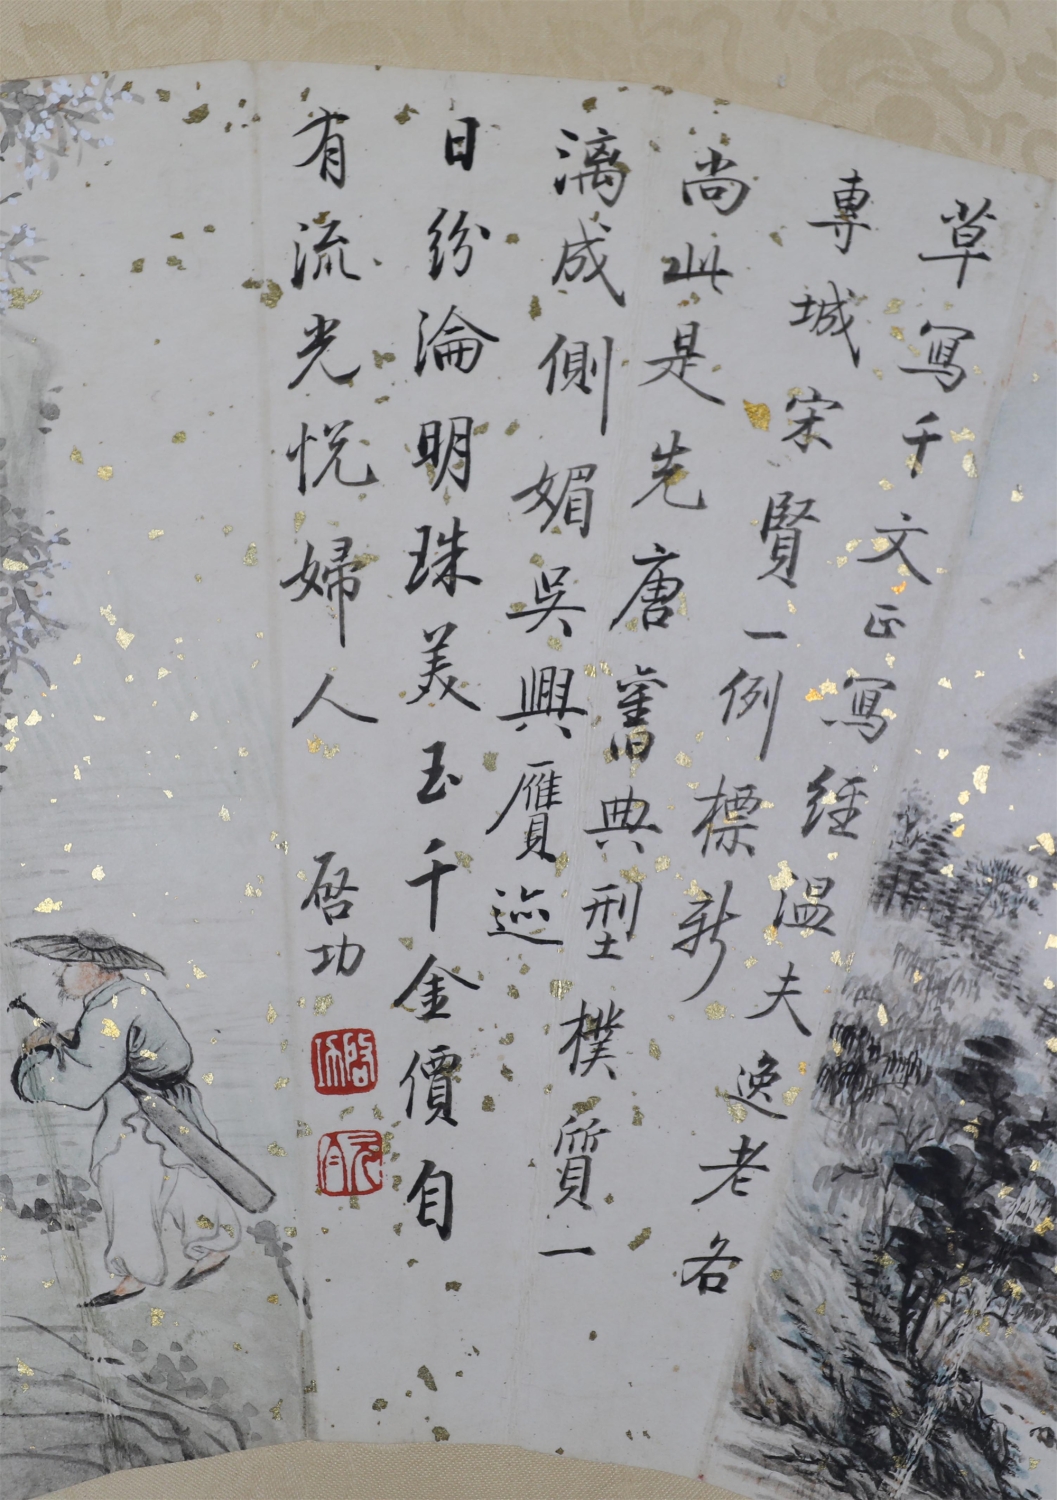 草寫千文正寫經溫夫逸老各
專城宋賢一例標新
尚此是先唐舊典型樸質一
漓成側媚吳興贋迹
日紛淪明珠美玉千金價自
有流光悅婦人
啓功